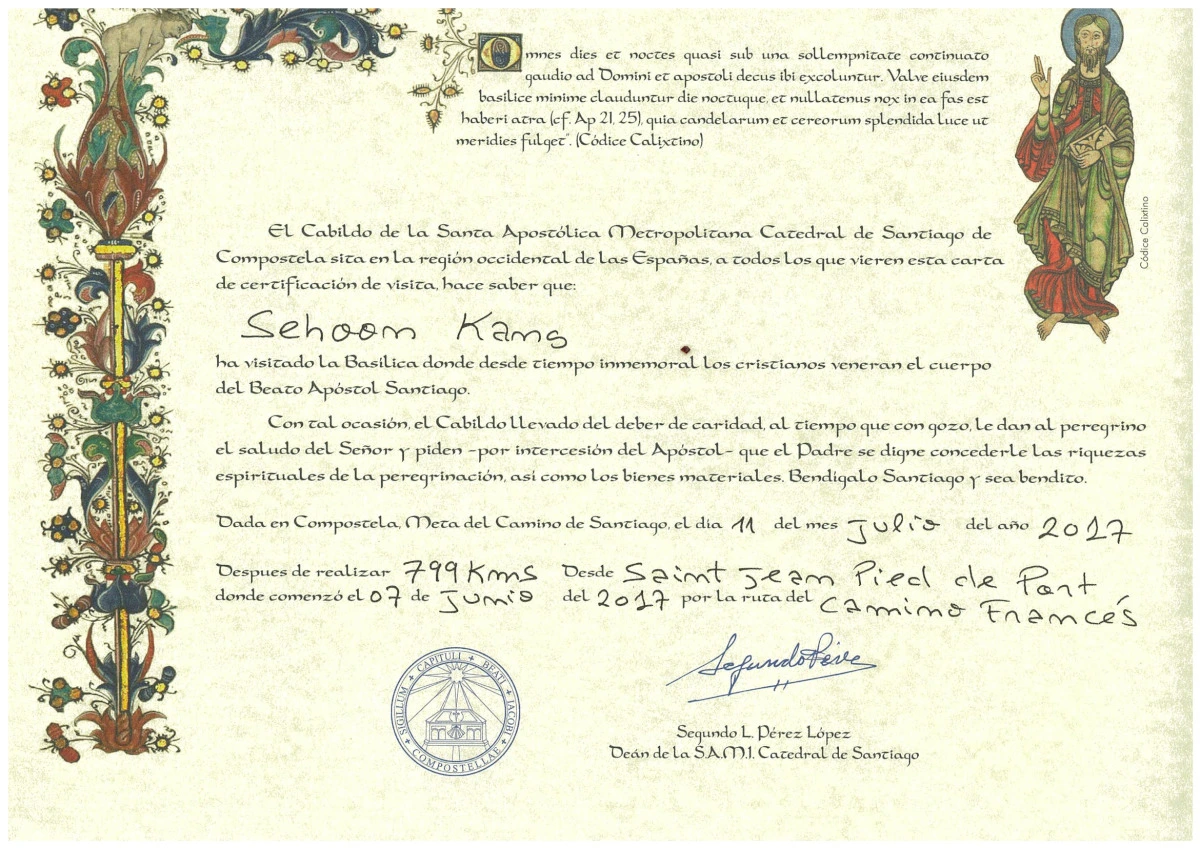 Omnes dies et noctes quasi sub una sollempnitate continuato
gaudio ad Domini et apostoli decus ibi excoluntur. Valve eiusdem
basilice minime clauduntur die noctuque, et nullatenus nox in ea fas est
haberi atra (cf. Ap 21, 25), quia candelarum et cereorum splendida luce ut
meridies fulget”. (Códice Calixtino)
Códice Calixtino
El Cabildo de la Santa Apostólica Metropolitana Catedral de Santiago de
Compostela sita en la región occidental de las Españas, a todos los que vieren esta carta
de certificación de visita, hace saber que:
Sehoon Kang
ha visitado la Basílica donde desde tiempo inmemoral los cristianos veneran el cuerpo
del Beato Apóstol Santiago.
Con tal ocasión, el Cabildo llevado del deber de caridad, al tiempo que con gozo, le dan al peregrino
el saludo del Señor y piden -por intercesión del Apóstol- que el Padre se digne concederle las riquezas
espirituales de la peregrinación, así como los bienes materiales. Bendígalo Santiago y sea bendito.
Dada en Compostela, Meta del Camino de Santiago, el día 11 del mes Julio del año 2017
Despues de realizar 799 Kms Desde Saint Jean Pied de Port
donde comenzó el 07 de Junio del 2017 por la ruta del Camino Francés
SIGILLUM + CAPITULI + BEATI + JACOBI + COMPOSTELLAE +
Segundo Pérez
Segundo L. Pérez López
Deán de la S.A.M.I. Catedral de Santiago